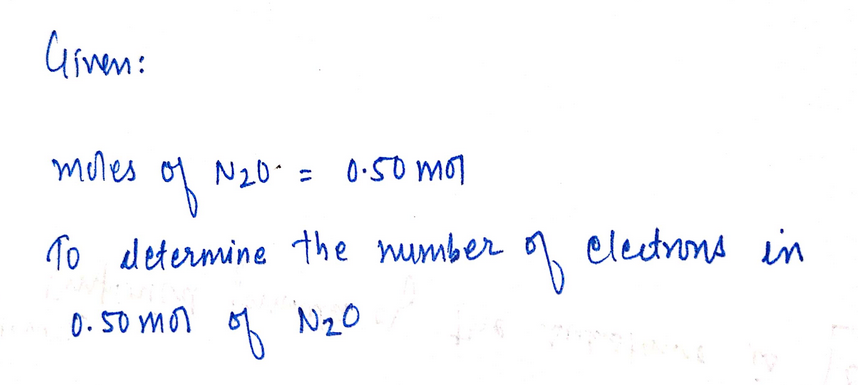 Given:
moles of N2O = 0.50 mol
To determine the number of electrons in
0.50 mol of N2O